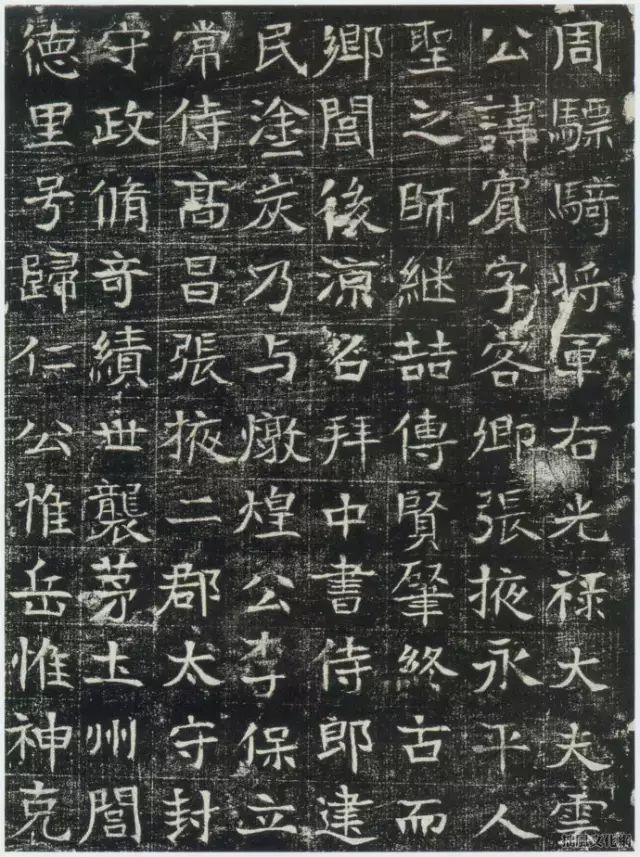 周驃騎将軍右光禄大夫雲
公諱賓字客卿張掖永平人
聖之師継喆傳賢肇終古而
郷閭後涼名拜中書侍郎建
民塗炭乃与燉煌公李保立
常侍髙昌張掖二郡太守封
守政脩竒績世襲茅土州閭
徳里号歸仁公惟岳惟神克